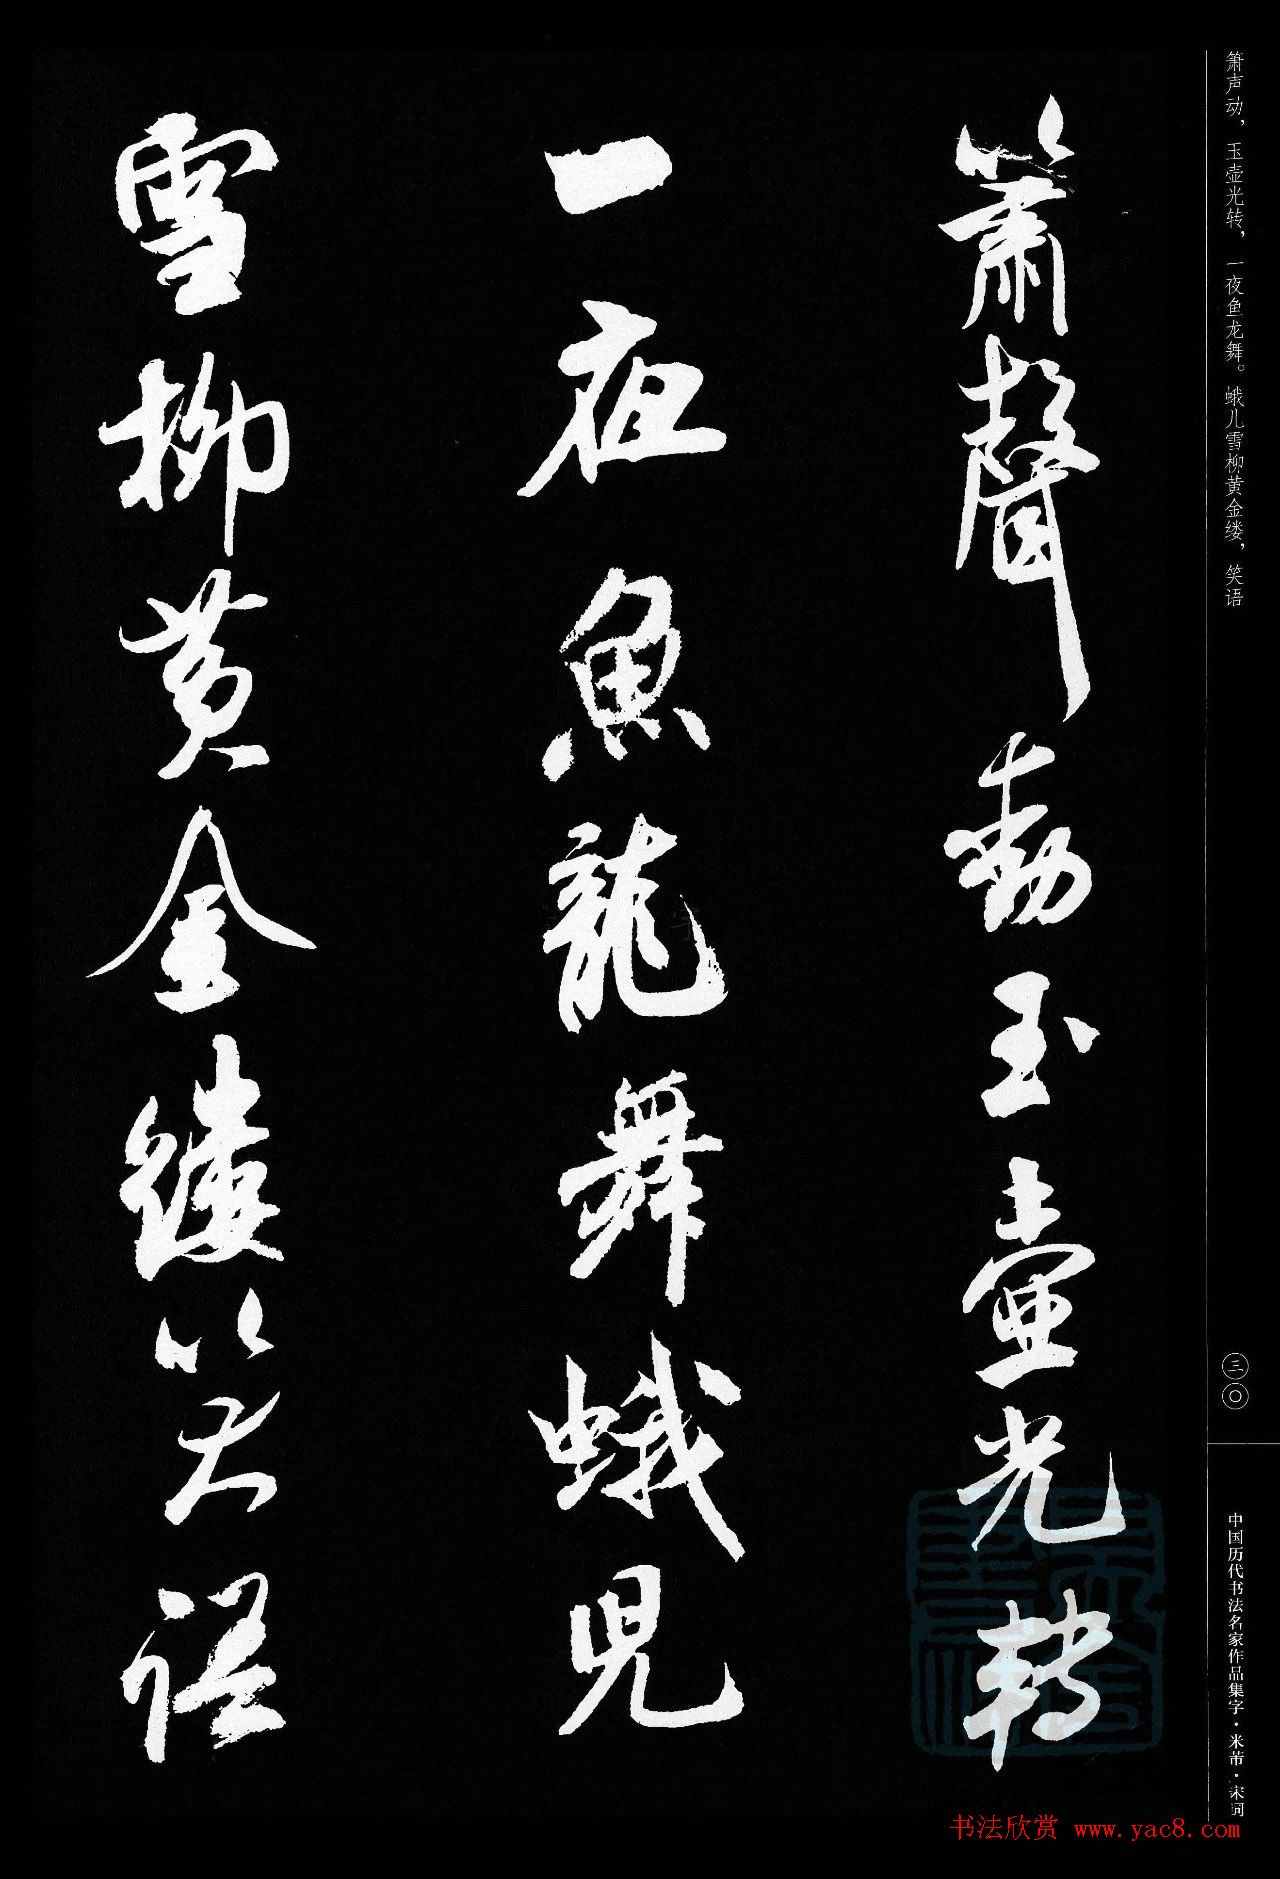 箫声动，玉壶光转，一夜鱼龙舞。蛾儿雪柳黄金缕，笑语
簫聲動玉壺光轉
一夜魚龍舞蛾兒
雪柳黃金縷笑語
三〇
中国历代书法名家作品集字·米芾·宋词
书法欣赏 www.yac8.com